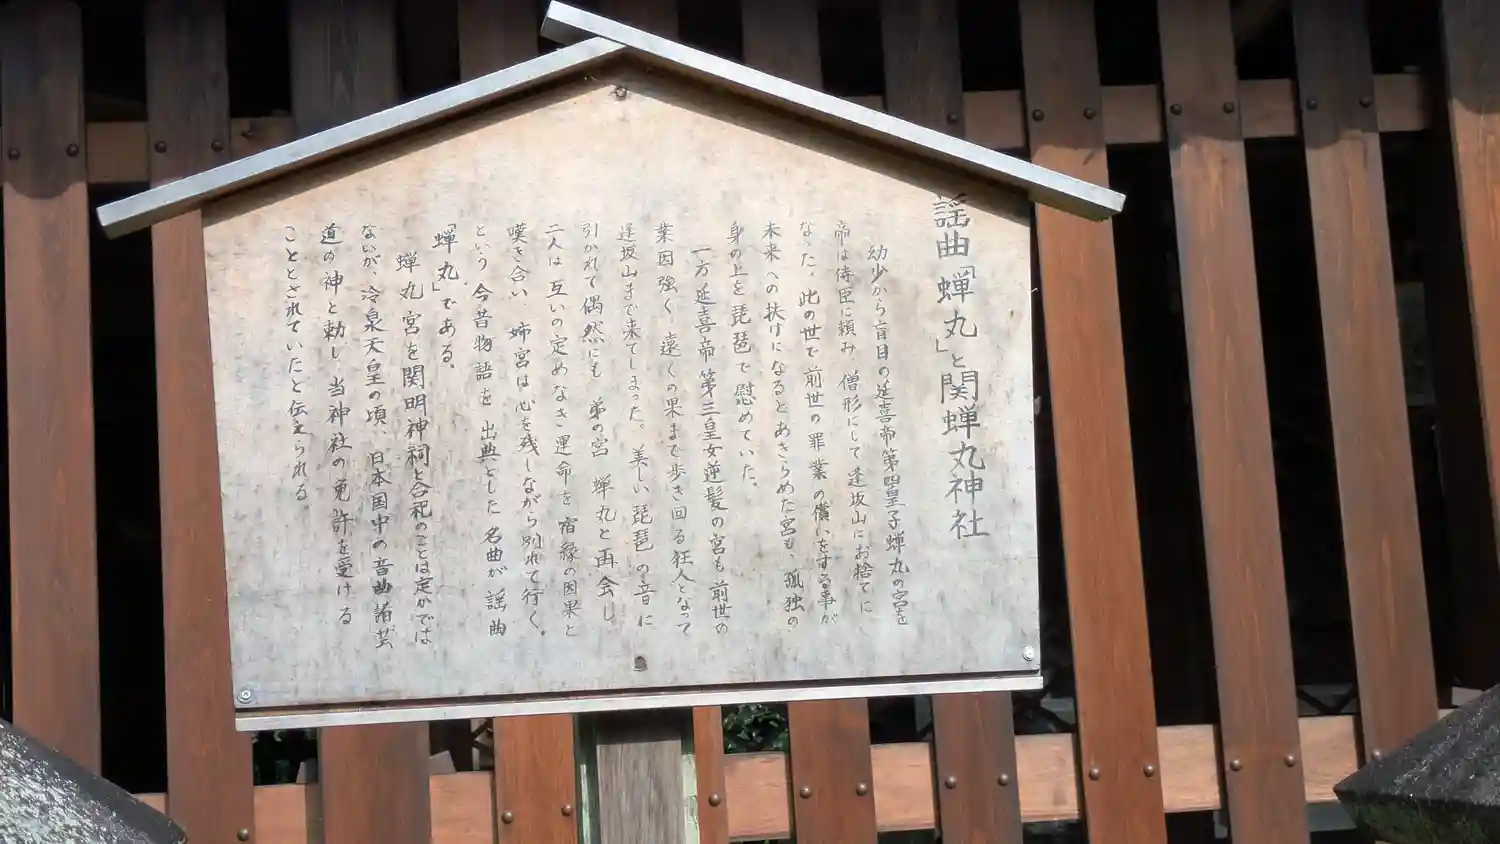 謡曲「蝉丸」と関蝉丸神社
幼少から盲目の延喜帝第四皇子蝉丸の宮を
帝は侍臣に頼み、僧形にして逢坂山にお捨てに
なった。此の世で前世の罪業の償いをする事が
未来への扶けになるとあきらめた宮も、孤独の
身の上を琵琶で慰めていた。
一方延喜帝第三皇女逆髪の宮も前世の
業因強く、遠くの果まで歩き回る狂人となって
逢坂山まで来てしまった。美しい琵琶の音に
引かれて偶然にも弟の宮蝉丸と再会し
二人は互いの定めなき運命を宿縁の因果と
嘆き合い、姉宮は心を残しながら別れて行く。
という今昔物語を出典とした名曲が謡曲
「蝉丸」である。
蝉丸宮を関明神祠と合祀のことは定かでは
ないが、冷泉天皇の頃、日本国中の音曲諸芸
道の神と勅し、当神社の免許を受ける
こととされていたと伝えられる。